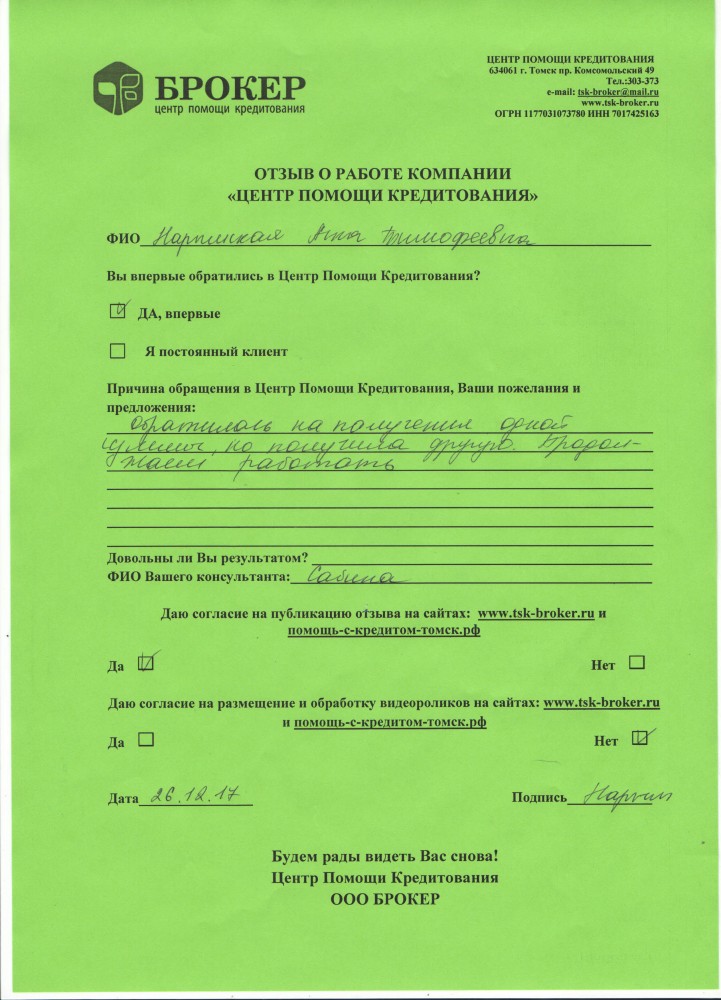 БРОКЕР
центр помощи кредитования
ЦЕНТР ПОМОЩИ КРЕДИТОВАНИЯ
634061 г. Томск пр. Комсомольский 49
Тел.:303-373
e-mail: tsk-broker@mail.ru
www.tsk-broker.ru
ОГРН 1177031073780 ИНН 7017425163
ОТЗЫВ О РАБОТЕ КОМПАНИИ
«ЦЕНТР ПОМОЩИ КРЕДИТОВАНИЯ»
ФИО Анна Тимофеевна
Вы впервые обратились в Центр Помощи Кредитования?
ДА, впервые
Я постоянный клиент
Причина обращения в Центр Помощи Кредитования, Ваши пожелания и
предложения:
обратилась на получения одной
но получила другую. Продол-
жаем работать
Довольны ли Вы результатом?
ФИО Вашего консультанта: Сабина
Даю согласие на публикацию отзыва на сайтах: www.tsk-broker.ru и
помощь-с-кредитом-томск.рф
Да Нет
Даю согласие на размещение и обработку видеороликов на сайтах: www.tsk-broker.ru
и помощь-с-кредитом-томск.рф
Да Нет
Дата 26.12.17 Подпись
Будем рады видеть Вас снова!
Центр Помощи Кредитования
ООО БРОКЕР